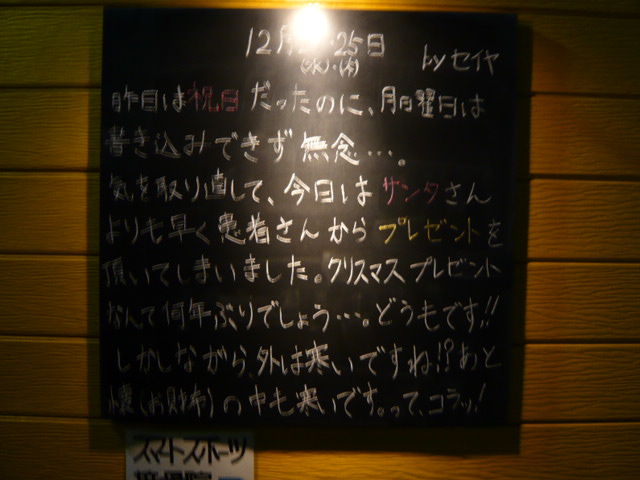 12月 25日
(水)・(木) byセイヤ
昨日は祝日だったのに、月曜日は
書き込みできず無念…。
気を取り直して、今日はサンタさん
よりも早く患者さんからプレゼントを
頂いてしまいました。クリスマスプレゼント
なんて何年ぶりでしょう…。どうもです!!
しかしながら、外は寒いですね!?あと
懐(お財布)の中も寒いです。って、コラッ!
スマートスポーツ